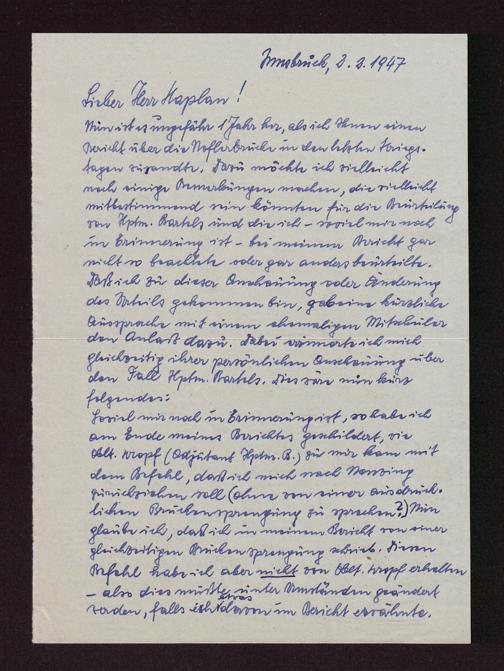 Innsbruck, 2.2.1947
Lieber Herr Kaplan!
Nun ist es ungefähr 1 Jahr her, als ich Ihnen einen
Bericht über die Volderbrücke in den letzten Kriegs-
tagen zusandte. Dazu möchte ich vielleicht
noch einige Bemerkungen machen, die vielleicht
mitbestimmend sein könnten für die Beurteilung
von Hptm. Bartels und die ich – soviel mir noch
in Erinnerung ist – bei meinem Bericht gar
nicht so beachtete oder gar anders beurteilte.
Daß ich zu dieser Anschauung oder Änderung
des Urteils gekommen bin, gab eine kürzliche
Aussprache mit einem ehemaligen Mitschüler
den Anlaß dazu. Dabei erinnerte ich mich
gleichzeitig ihrer persönlichen Anschauung über
den Fall Hptm. Bartels. Dies wäre nun kurz
folgendes:
Soviel mir noch in Erinnerung ist, so habe ich
am Ende meines Berichtes geschildert, wie
Oblt. Kropf (Adjutant Hptm. B.) zu mir kam mit
dem Befehl, daß ich mich nach
zurückziehen soll (ohne von einer ausdrück-
lichen Brückensprengung zu sprechen?) Nun
glaube ich, daß ich in meinem Bericht von einer
gleichzeitigen Brückensprengung schrieb. Diesen
Befehl habe ich aber nicht von Oblt. Kropf erhalten
– also dies müßte unter Umständen geändert
werden, falls ich etwas davon im Bericht erwähnte.